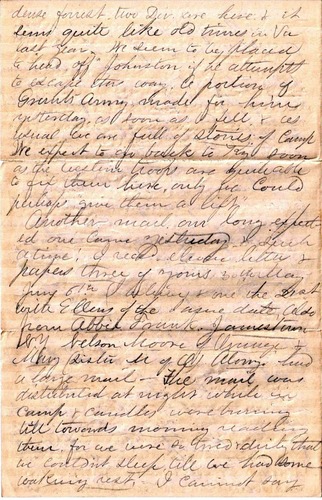 dense forrest. two Div. are here & it
seems quite like old times in Va
last year. We seem to be placed
to head off Johnston if he attempts
to escape this way. A portion of
Grants Army made for him
yesterday, as soon as it fell & as
usual we are full of stories of Camp
We expect to go back to soon
as the western troops are
to fix them here, only we could
perhaps give them a lift.
Another mail, our long expect
ed one came yesterday & such
a time! I recd eleven letters &
papers three of yours
6th & one the first
with Ellens of the same date, Also
from Abbie Frank, Jamestown
NY Nelson Moore
Mary sister M of Al Alonzo had
a large mail - The mail was
distributed at night while in
camp & candles were burning
till towards morning reading
them, for we were so tired & dirty that
we couldnt sleep till we had some
waking rest, - I cannot say